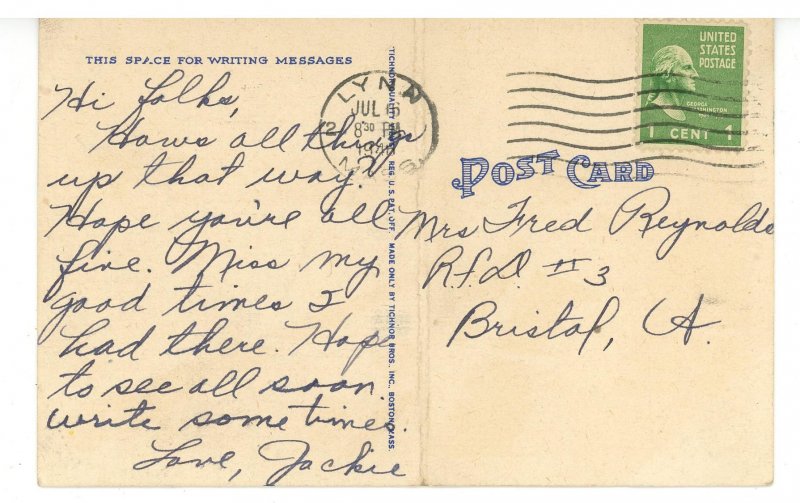 THIS SPACE FOR WRITING MESSAGES
Hi folks,
Hows all things
up that way?
Hope you're all
fine. Miss my
good times I
had there. Hope
to see all soon.
write sometimes.
Love, Jackie
TICHNOR QUALITY REG. U.S. PAT. OFF. MADE ONLY BY TICHNOR BROS., INC., BOSTON, MASS.
LYNN
JUL
8 30 PM
UNITED
STATES
POSTAGE
GEORGE
WASHINGTON
1 CENT 1
POST CARD
Mrs Fred Reynolds
R.f.D. #3
Bristol, Ct.